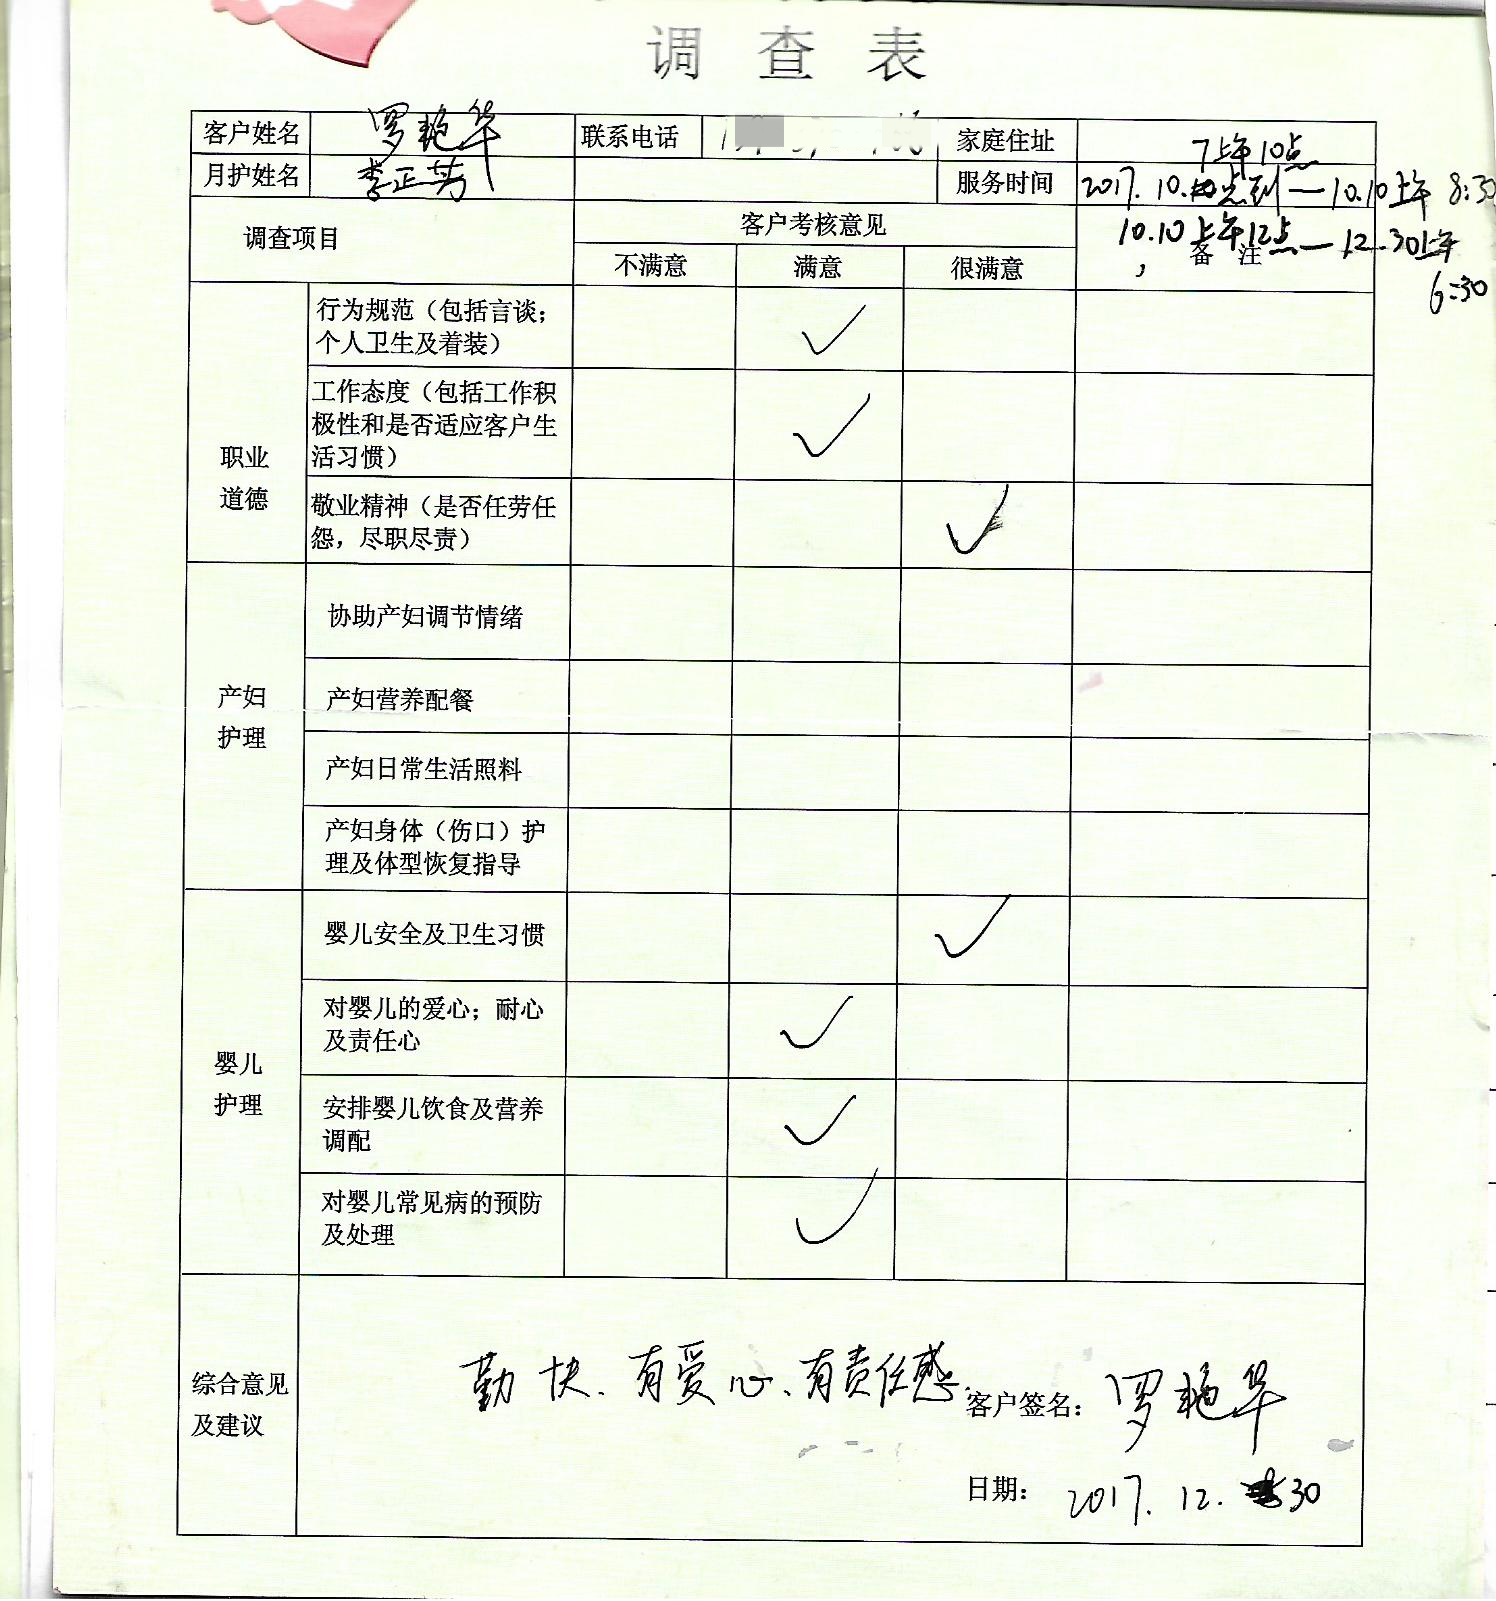 调查表
客户姓名 罗艳华 联系电话 家庭住址
7上午10点
月护姓名 李正芳 服务时间 2017.10. 点到—10.10上午8:30
10.10上午12点—12.30上午
6:30
调查项目 客户考核意见 备注
不满意 满意 很满意
职业
道德
行为规范（包括言谈；
个人卫生及着装） ✓
工作态度（包括工作积
极性和是否适应客户生
活习惯） ✓
敬业精神（是否任劳任
怨，尽职尽责） ✓
产妇
护理
协助产妇调节情绪
产妇营养配餐
产妇日常生活照料
产妇身体（伤口）护
理及体型恢复指导
婴儿
护理
婴儿安全及卫生习惯 ✓
对婴儿的爱心；耐心
及责任心 ✓
安排婴儿饮食及营养
调配 ✓
对婴儿常见病的预防
及处理 ✓
综合意见
及建议
勤快、有爱心、有责任感.
客户签名：罗艳华
日期：2017.12.30